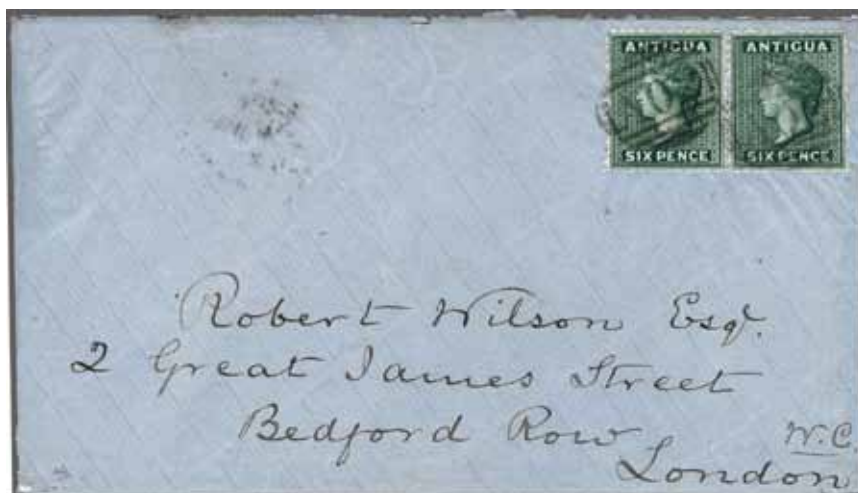 ANTIGUA ANTIGUA
SIX PENCE SIX PENCE
Robert Wilson Esqr.
2 Great James Street
Bedford Row W.C.
London